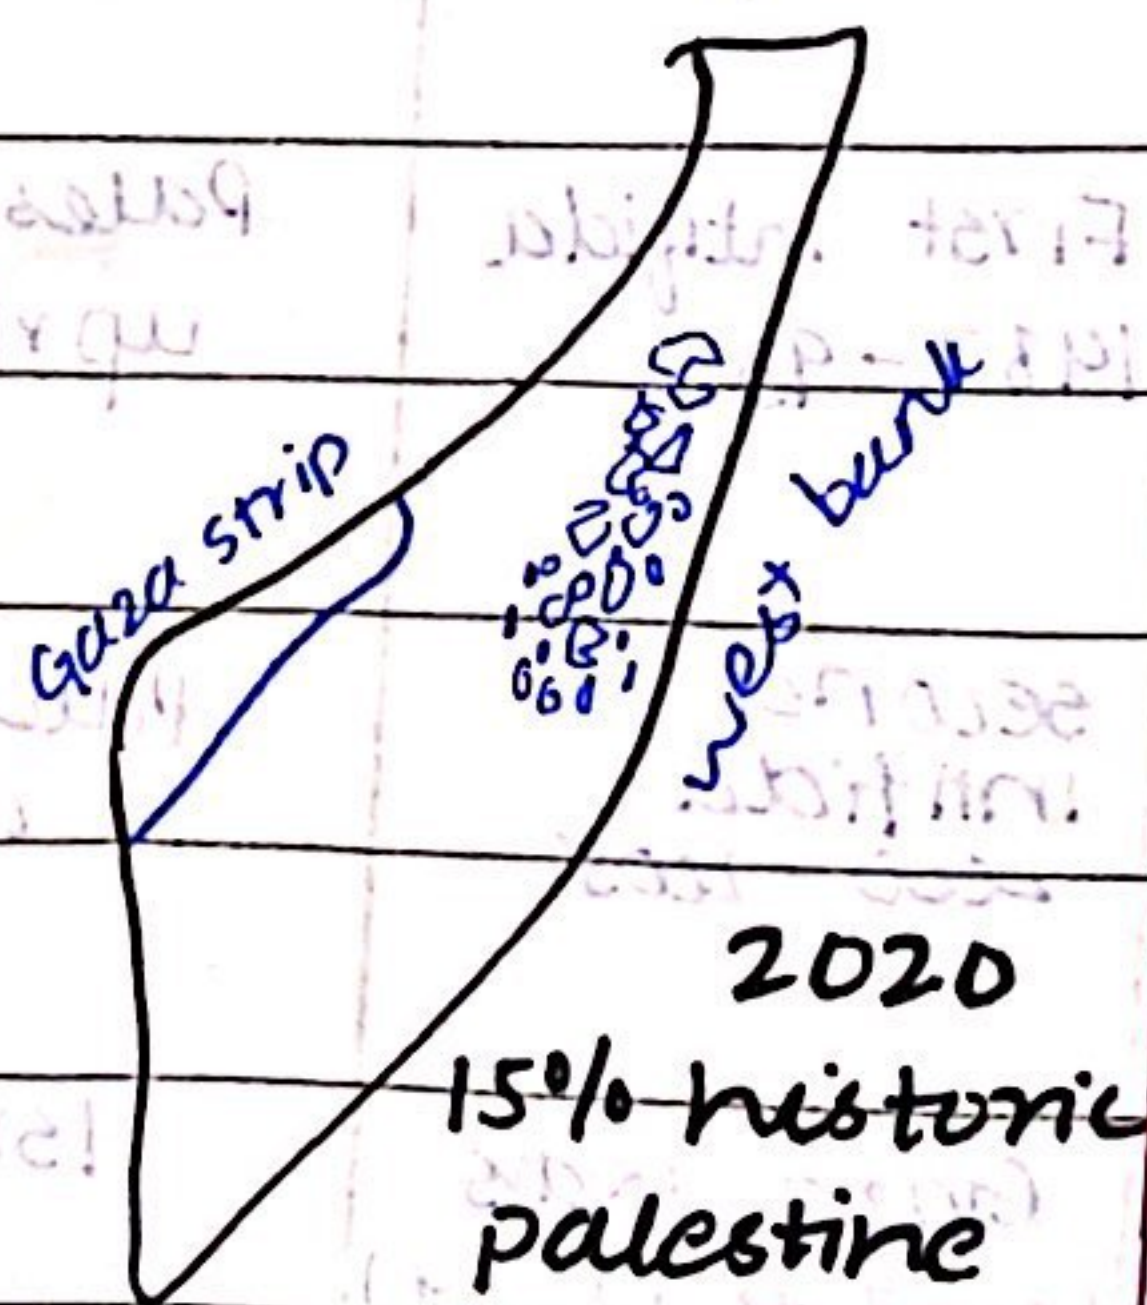 Gaza strip
west bank
2020
15% historic
palestine